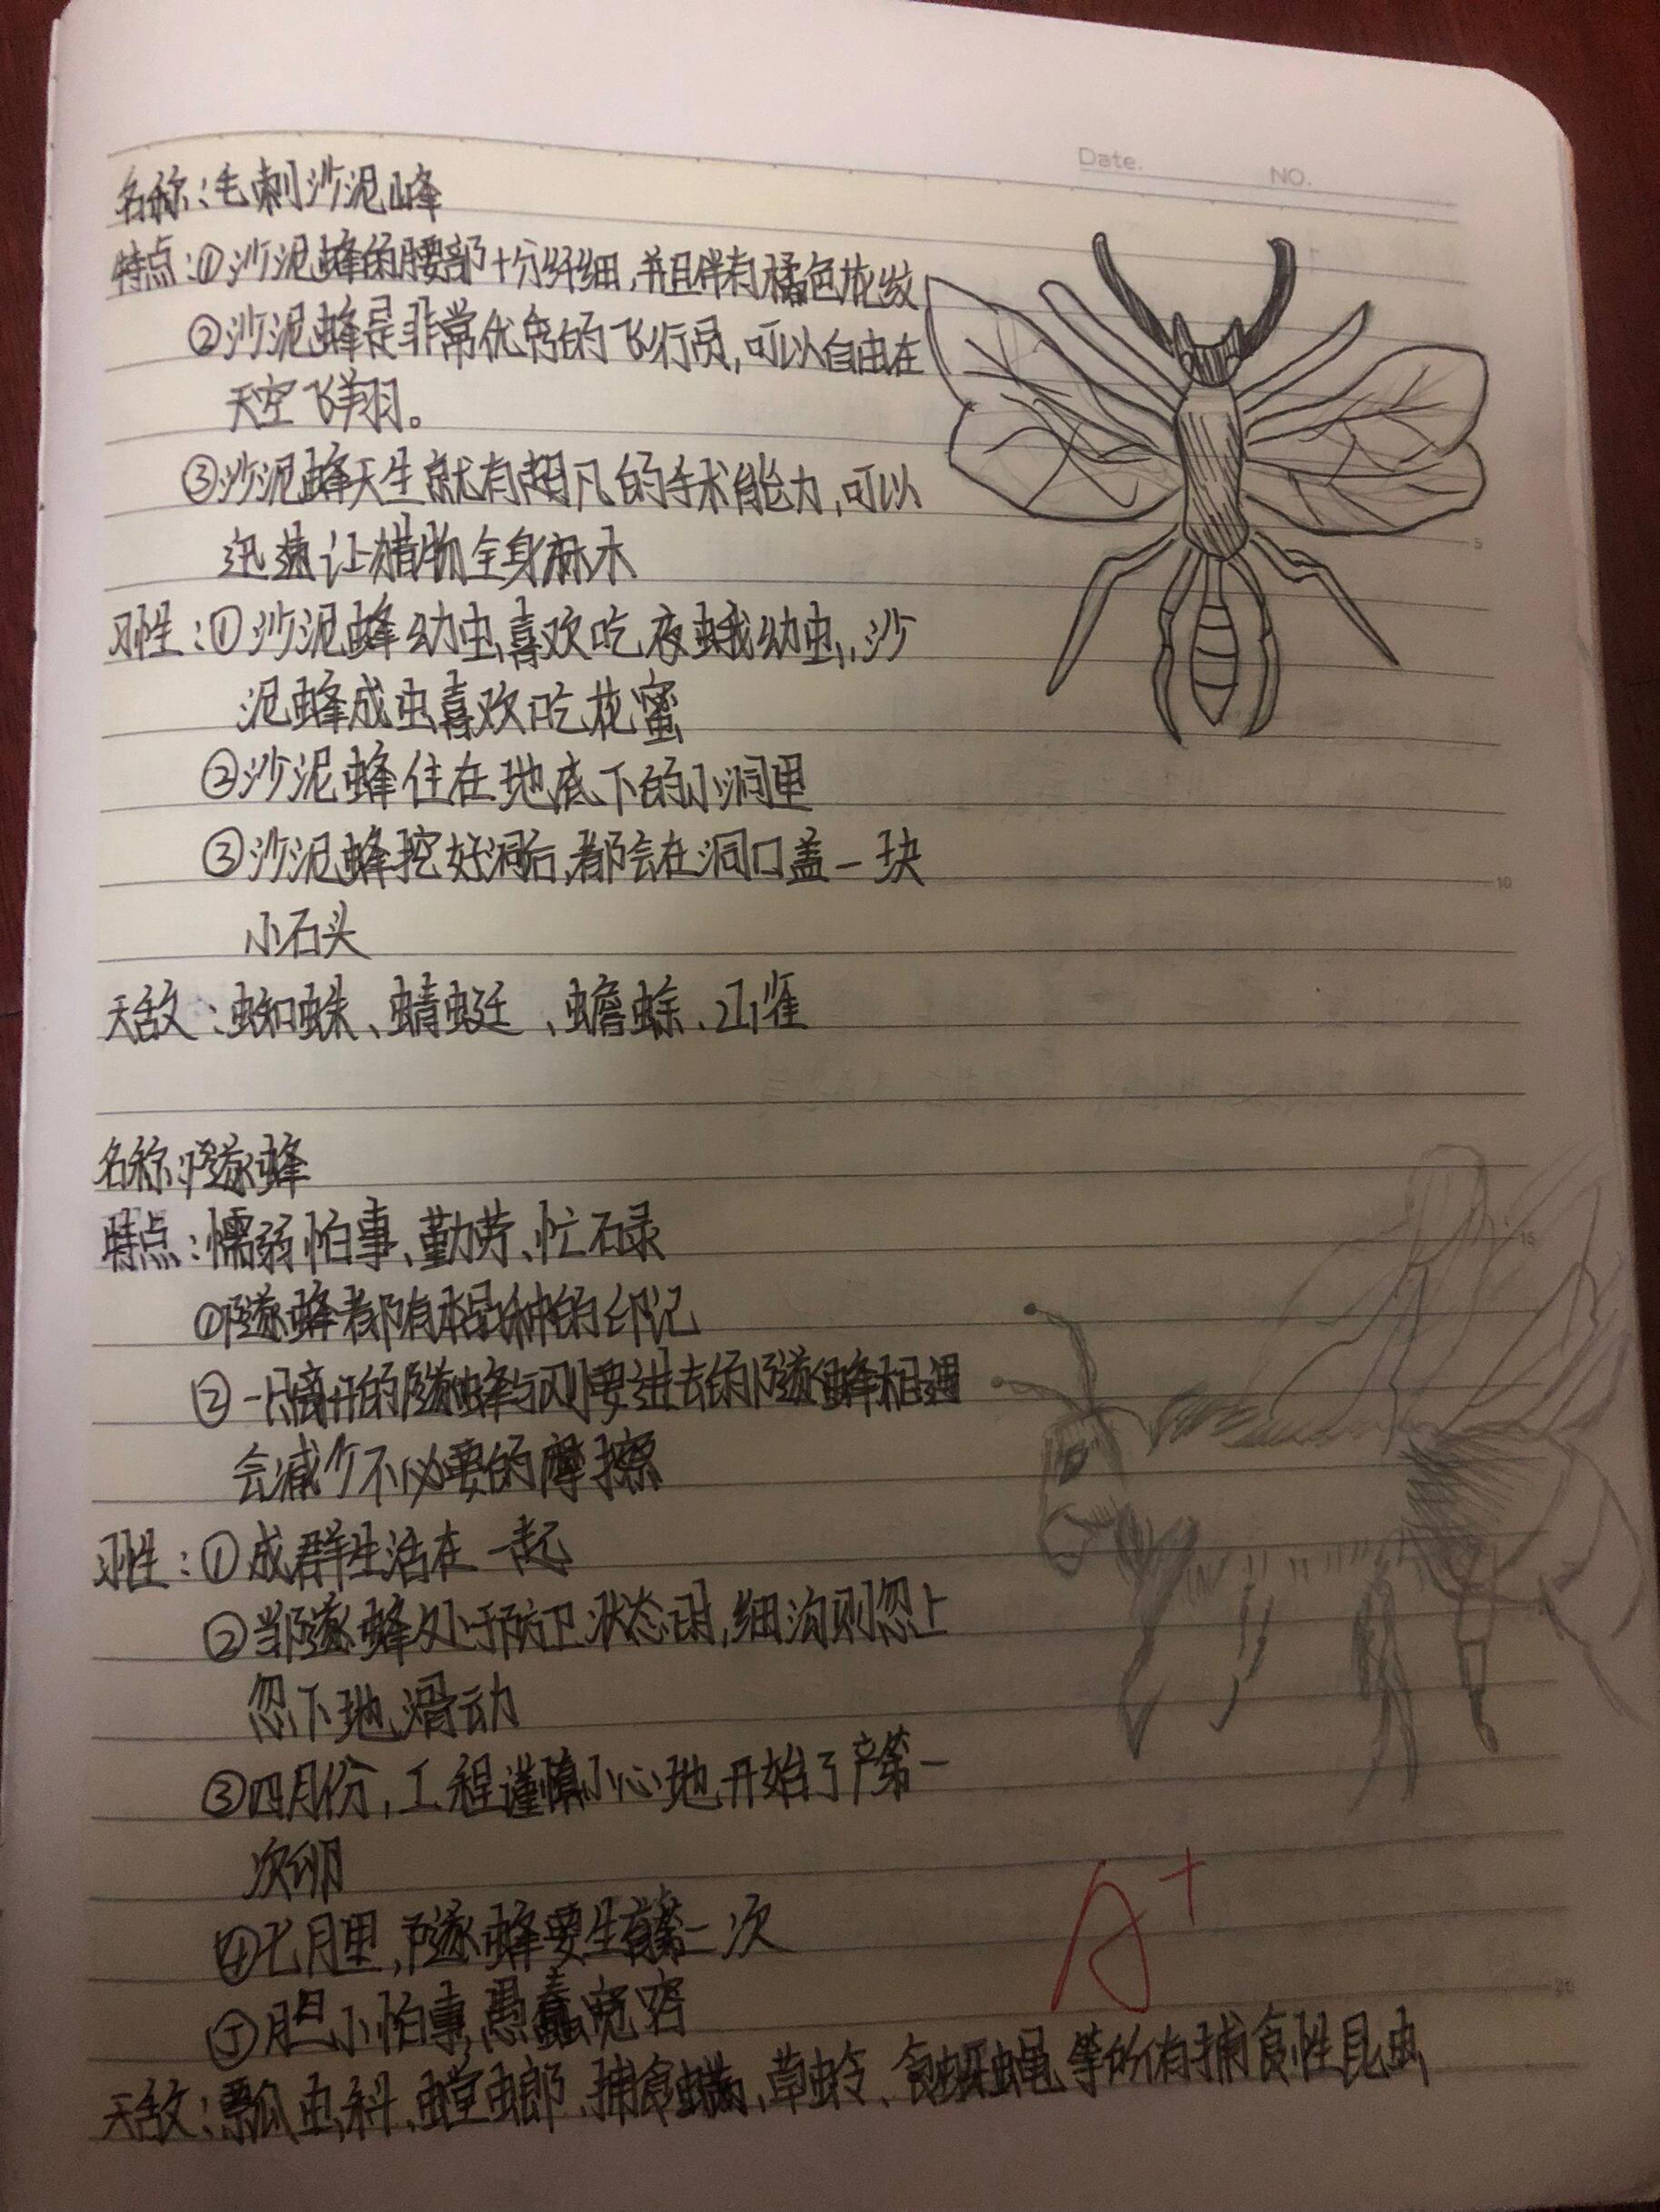 Date.
NO.
名称：毛刺沙泥峰
特点：①沙泥蜂的腰部十分纤细，并且伴有橘色花纹
②沙泥蜂是非常优秀的飞行员，可以自由在
天空飞翔。
③沙泥蜂天生就有超凡的手术能力，可以
迅速让猎物全身麻木
习性：①沙泥蜂幼虫喜欢吃夜蛾幼虫，沙
泥蜂成虫喜欢吃花蜜
②沙泥蜂住在地底下的小洞里
③沙泥蜂挖好洞后，都会在洞口盖一块
小石头
天敌：蜘蛛、蜻蜓、蟾蜍、山雀
名称：隧蜂
特点：懦弱怕事、勤劳、忙碌
①隧蜂都有本品种的印记
②一只离开的隧蜂与刚要进去的隧蜂相遇
会减少不必要的摩擦
习性：①成群生活在一起
②当隧蜂处于防卫状态时，细沟则忽上
忽下地滑动
③四月份，工程谨慎小心地开始了产第一
次卵
④七月里，隧蜂要生育第二次
⑤胆小怕事，愚蠢宽容
天敌：瓢虫科、螳螂、捕食螨、草蛉、食蚜蝇等的所有捕食性昆虫
A+
5
10
15
20